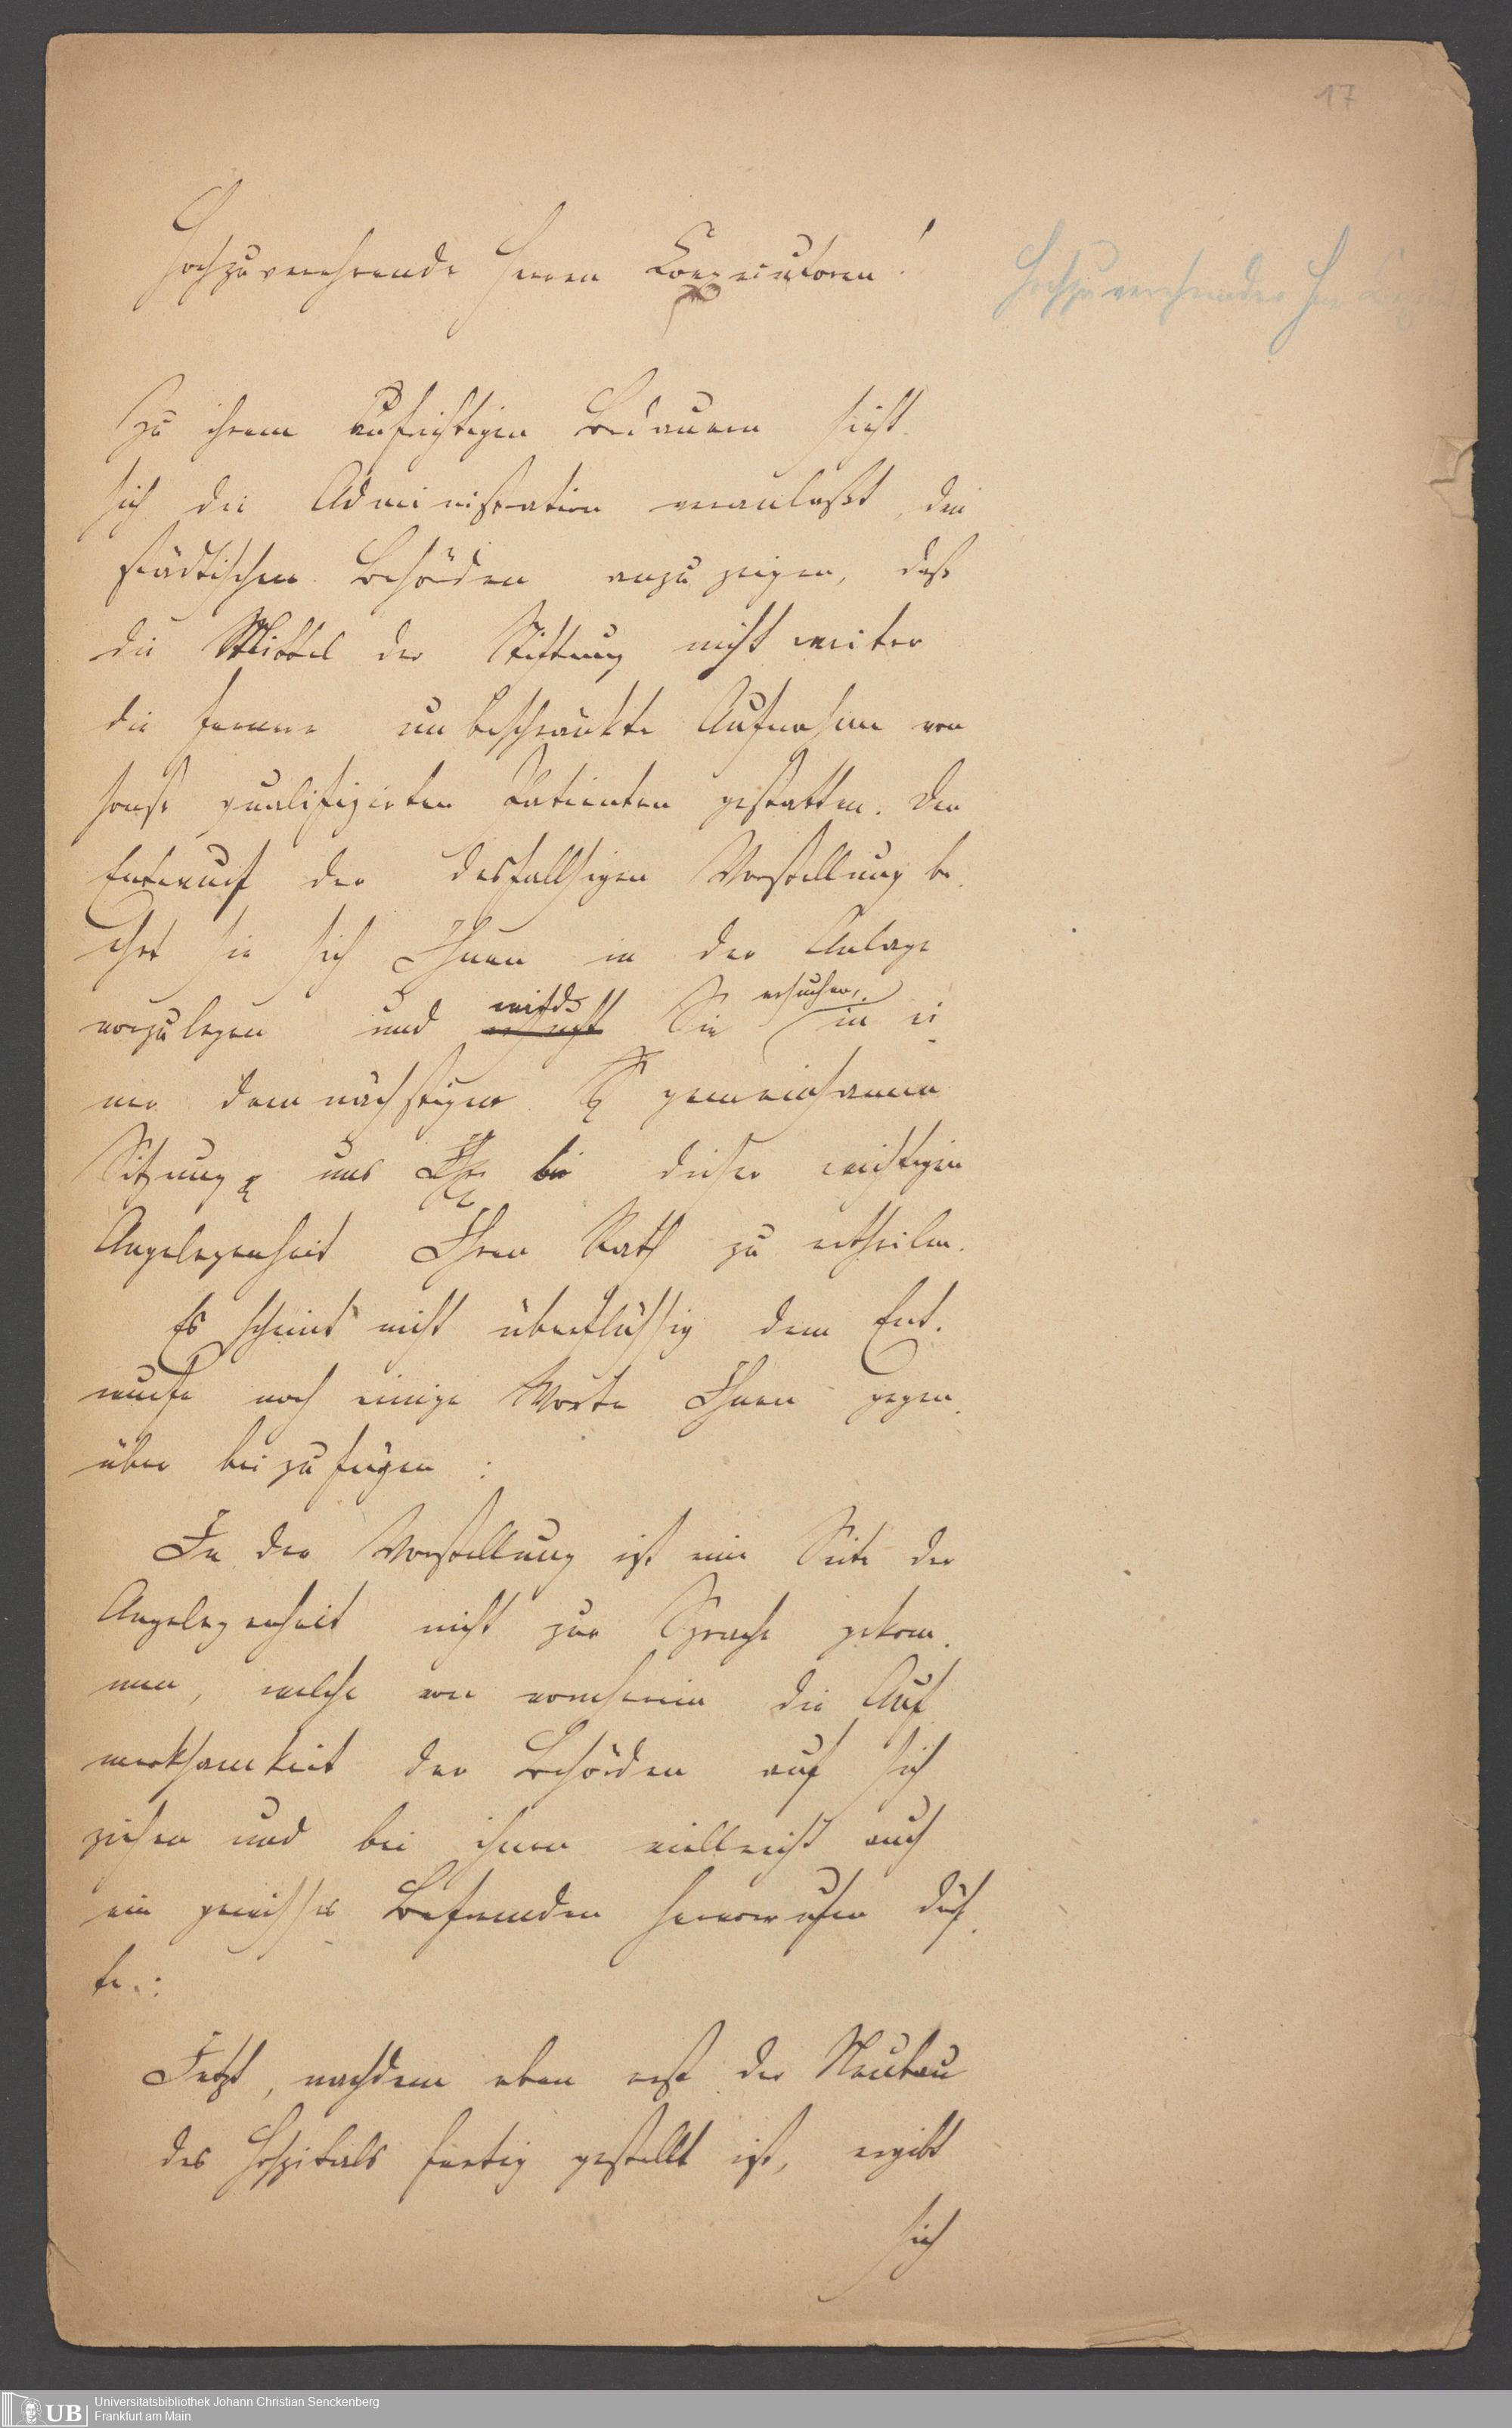 17
Hochzuverehrende Herren Konsecutoren!
Hochzuverehrender Herr
Zu ihrem aufrichtigen Bedauern sieht
sich die Administration veranlaßt, den
städtischen Behörden anzuzeigen, daß
die Mittel der Stiftung nicht weiter
die fernere unbeschränkte Aufnahme von
sonst qualifizirten Patienten gestatten. Den
Entwurf der desfallsigen Vorstellung be-
ehrt sie sich Ihnen in der Anlage
vorzulegen und ersucht würde Sie ersuchen, in ei-
ner demnächstigen gemeinsamen
Sitzung uns bei dieser wichtigen
Angelegenheit Ihren Rath zu ertheilen.
Es scheint nicht überflüssig dem Ent-
wurfe noch einige Worte Ihnen gegen-
über beizufügen:
In der Vorstellung ist eine Seite der
Angelegenheit nicht zur Sprache gekom-
men, welche von vornherein die Auf
merksamkeit der Behörden auf sich
ziehen und bei ihnen vielleicht auch
ein gewisses Befremden hervorrufen dürf-
te.:
Jetzt, nachdem eben erst der Neubau
des Hospitals fertig gestellt ist, ergibt
sich
Universitätsbibliothek Johann Christian Senckenberg
Frankfurt am Main
UB